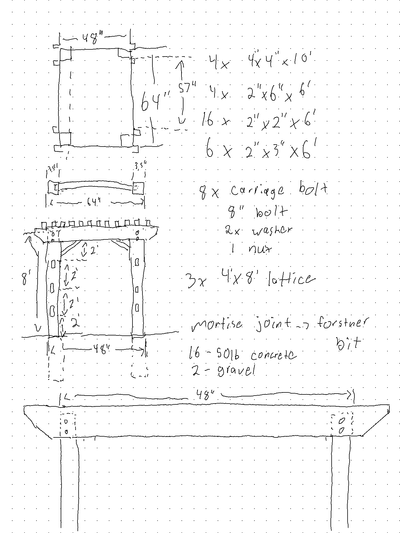 48"
64"
57"
4x 4"x4"x10'
4x 2"x6"x6'
16x 2"x2"x6'
6x 2"x3"x6'
3.5"
3.5"
64"
8x carriage bolt
8" bolt
2x washer
1 nut
3x 4'x8' lattice
8'
2'
2'
2'
2'
48"
mortise joint -> forstner
bit
16 - 50lb concrete
2 - gravel
48"